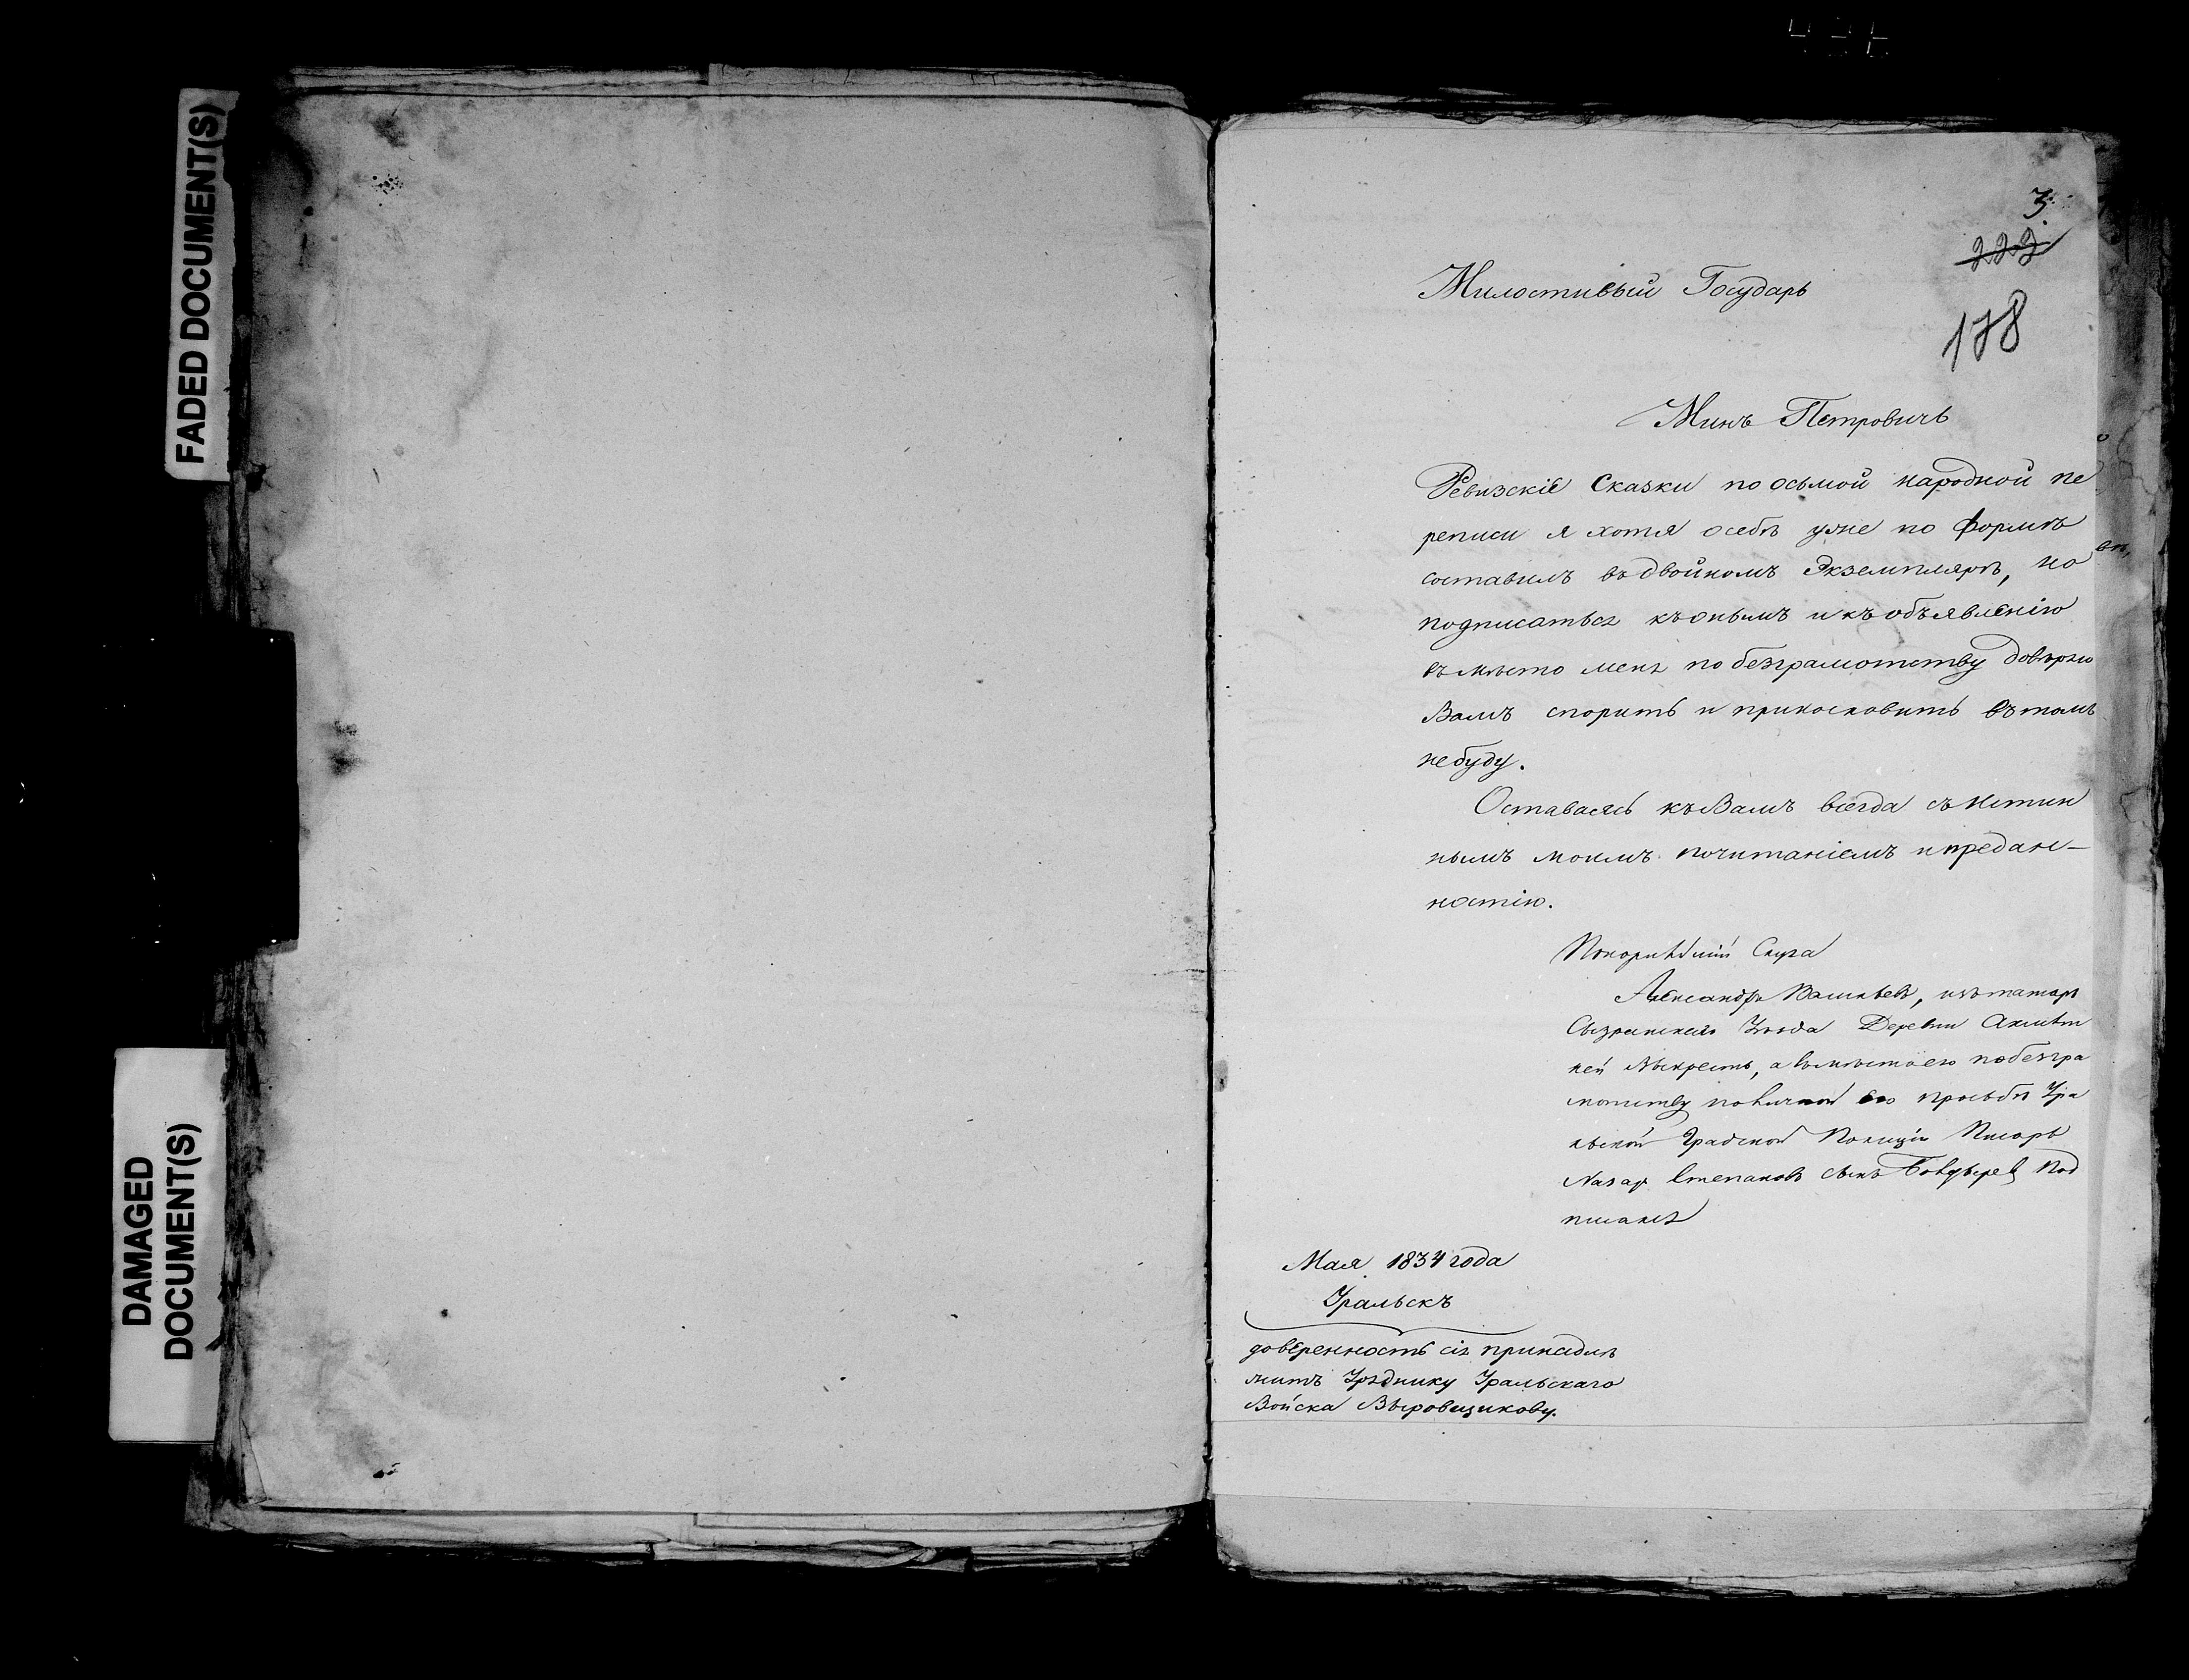 FADED DOCUMENT(S)
DAMAGED
DOCUMENT(S)
3.
222
178
Милостивый Государь
Минъ Петровичь
Ревизскіе Сказки по осьмой народной пе
реписи я хотя о себѣ уже по формѣ
составилъ въ двойномъ Экземплярѣ, но
подписаться къ онымъ и къ объявленію
въ мѣсто меня по безграмотству довѣряю
Вамъ спорить и прикословить въ томъ
не буду.
Оставаясь къ Вамъ всегда съ истин
нымъ моимъ почитаніемъ и предан-
ностію.
Покорнѣйшій Слуга
Александръ Васильевъ, изъ татаръ
Сызранскаго Уѣзда Деревни
а вместо его по безгра
мотству по личной его просьбѣ Ура
льской Градской Полиціи Писарь
Назар Степановъ сынъ под
писался
Мая 1834 года
Уральскъ
доверенность сія принадлѣ
житъ Уряднику Уральскаго
Войска Выровщикову.